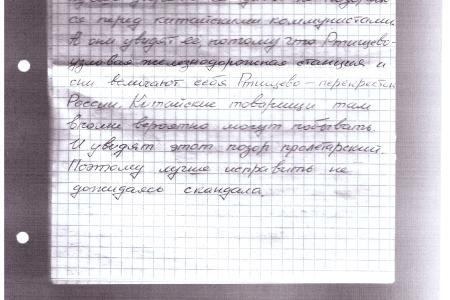 ся перед китайскими коммунистами.
А они увидят её, потому что Ртищево-
узловая железнодорожная станция и
они величают себя Ртищево - перекрёсток
России. Китайские товарищи там
вполне вероятно могут побывать.
И увидят этот позор пролетарский.
Поэтому лучше исправить не
дожидаясь скандала.